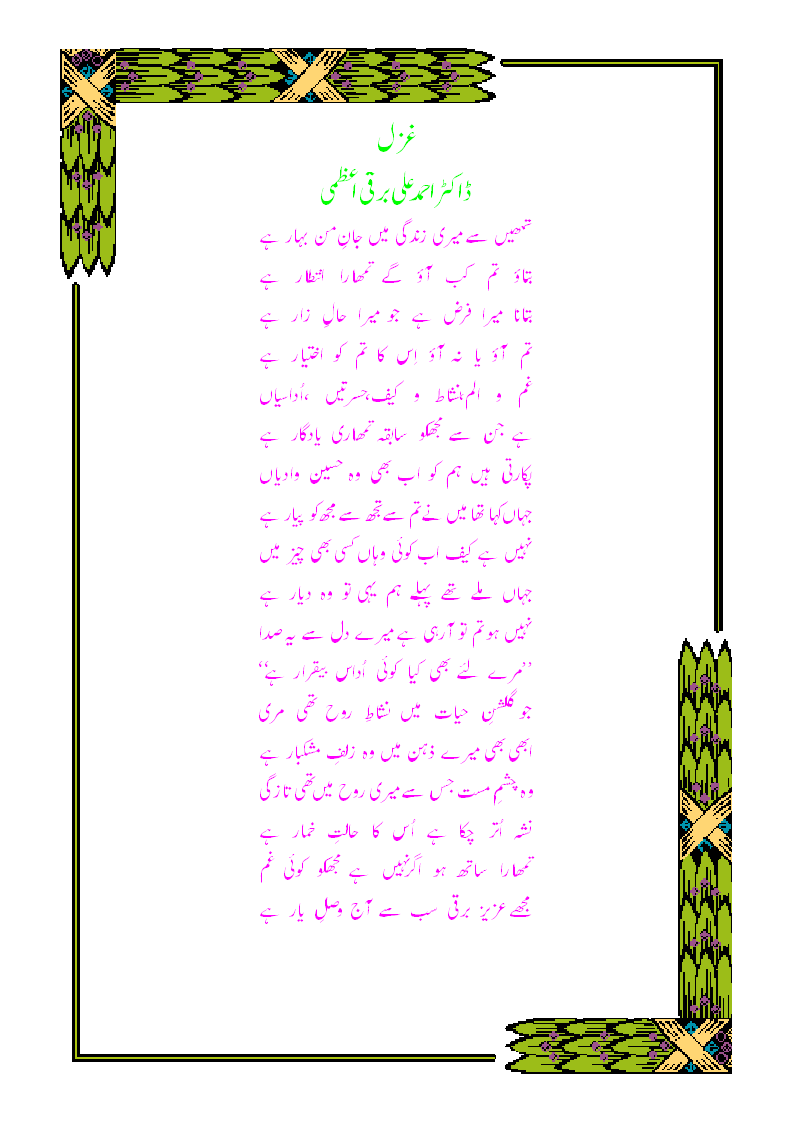 غزل
ڈاکٹر احمد علی برقی اعظمی
تمھیں سے میری زندگی میں جانِ من بہار ہے
بتاؤ تم کب آؤ گے تمھارا انتظار ہے
بتانا میرا فرض ہے جو میرا حالِ زار ہے
تم آؤ یا نہ آؤ اِس کا تم کو اختیار ہے
غم و الم،نشاط و کیف،حسرتیں ،اُداسیاں
ہے جن سے مجھکو سابقہ تمھاری یادگار ہے
پکارتی ہیں ہم کو اب بھی وہ حسین وادیاں
جہاں کہا تھا میں نے تم سے تجھ سے مجھ کو پیار ہے
نہیں ہے کیف اب کوئی وہاں کسی بھی چیز میں
جہاں ملے تھے پہلے ہم یہی تو وہ دیار ہے
نہیں ہو تم تو آرہی ہے میرے دل سے یہ صدا
’’مرے لئے بھی کیا کوئی اُداس بیقرار ہے‘‘
جو گلشنِ حیات میں نشاطِ روح تھی مری
ابھی بھی میرے ذہن میں وہ زلف مشکبار ہے
وہ چشمِ مست جس سے میری روح میں تھی تازگی
نشہ اُتر چکا ہے اُس کا حالتِ خمار ہے
تمھارا ساتھ ہو اگر نہیں ہے مجھکو کوئی غم
مجھے عزیز برقی سب سے آج وصلِ یار ہے